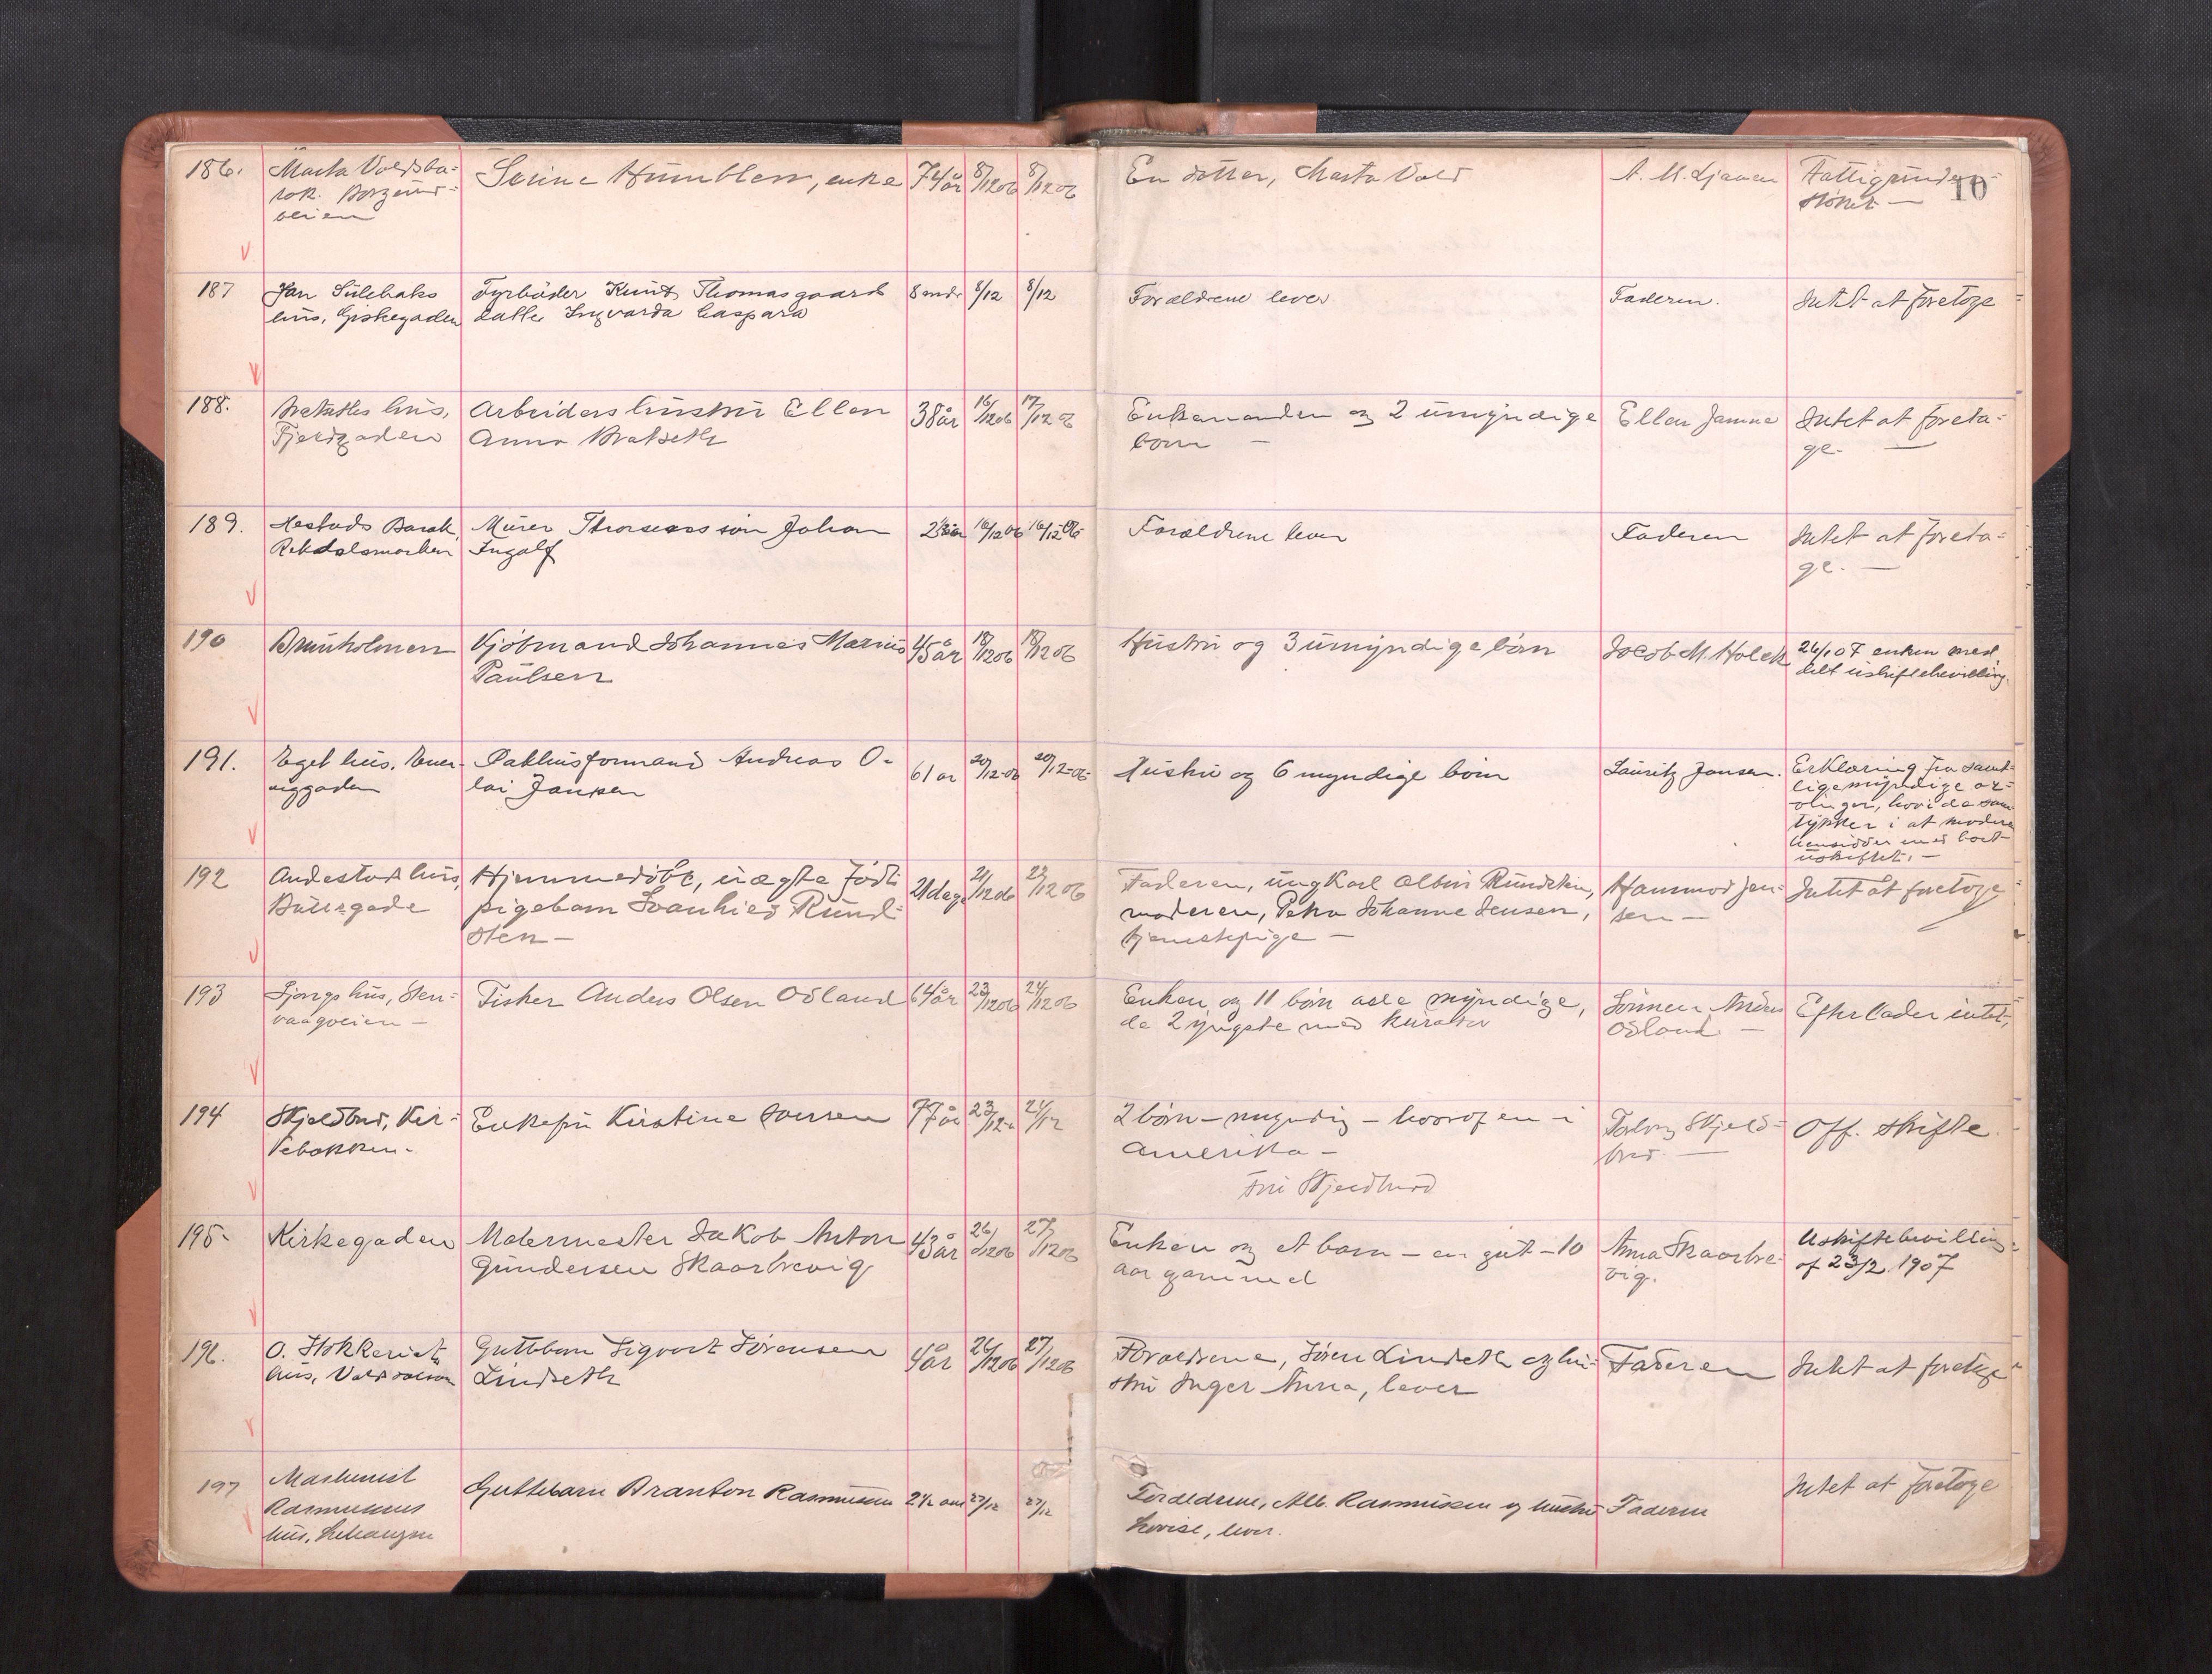 10
186.
Marta Voldsba-
rak. Borgund-
veien
Serine Humblen, enke
74 år
8/12 06
8/12 06
En datter, Marta Vold
A. M. Ljaaen
Fattigunder-
støttet —
187
Jan Sulebaks
hus, Giskegaden
Fyrbøder Knut Thomasgaards
datter Ingvarda Caspara
8 mdr
8/12
8/12
Forældrene lever
Faderen.
Intet at foretage
188.
Bratseths hus,
Fjeldgaden
Arbeiders hustru Ellen
Anna Bratseth
38 år
16/12 06
17/12 06
Enkemanden og 2 umyndige
børn —
Ellen Janna
Intet at foreta-
ge. —
189.
Hestads Barak,
Rekdalsmarken
Murer Thorsens søn Johan
Ingolf
16/12 06
16/12 06
Forældrene lever
Faderen
Intet at foreta-
ge. —
190
Brunholmen
Kjøbmand Johannes Marius
Paulsen
45 år
18/12 06
18/12 06
Hustru og 3 umyndige børn
Jacob M. Holck
26/1 07 enken med
delt uskiftebevilling.
191.
Eget hus,
Pakhusformand Andreas O-
lai Jansen
61 år
20/12-06
20/12-06
Hustru og 6 myndige børn
Lauritz Jansen.
Erklæring fra samt-
lige myndige ar-
vinger, hvori de sam-
tykker i at moderen
hensidder med boet
uskiftet. —
192
Andestads hus,
Buegade
Hjemmedøbt, uægte født
pigebarn Svanhild Rund-
sten —
21 dage
21/12 06
22/12 06
Faderen, ungKarl Albin Rundsten,
moderen, Petra Johanne Jensen,
tjenestepige —
Hammod Jen-
sen —
Intet at foretage
193
Ljongs hus, Sten-
vaagveien —
Fisker Anders Olsen Osland
64 år
23/12 06
24/12 06
Enken og 11 børn alle myndige,
de 2 yngste med kurator
Sønnen
Osland —
Efterlader intet,
194
Skjeldbred, Kir-
kebakken.
Enkefru Kirstine Iversen
77 år
23/12
24/12
2 børn - myndig - hvoraf en i
Amerika —
Fru Skjeldbred
Torborg Skjeld-
bred. —
Off. skifte.
195-
Kirkegaden
Malermester Jakob Anton
Gundersen Skaarbrevig
43 år
26/12 06
27/12 06
Enken og et barn — en gut — 10
aar gammel
Anna Skaarbre-
vig.
Uskiftebevilling
af 23/2 1907
196.
O. Stokkereits
hus, Voldsdalen
Guttebarn Sigvart Sørensen
Lindseth
4 år
26/12 06
27/12 06
Forældrene, Søren Lindseth og hu-
stru Inger Anna, lever
Faderen
Intet at foretage
197
Maskinist
Rasmussens
hus,
Guttebarn Branton Rasmussen
2½ aar
27/12
27/12
Forældrene, Alb. Rasmussen og hustru
Lovise, lever.
Faderen
Intet at foretage